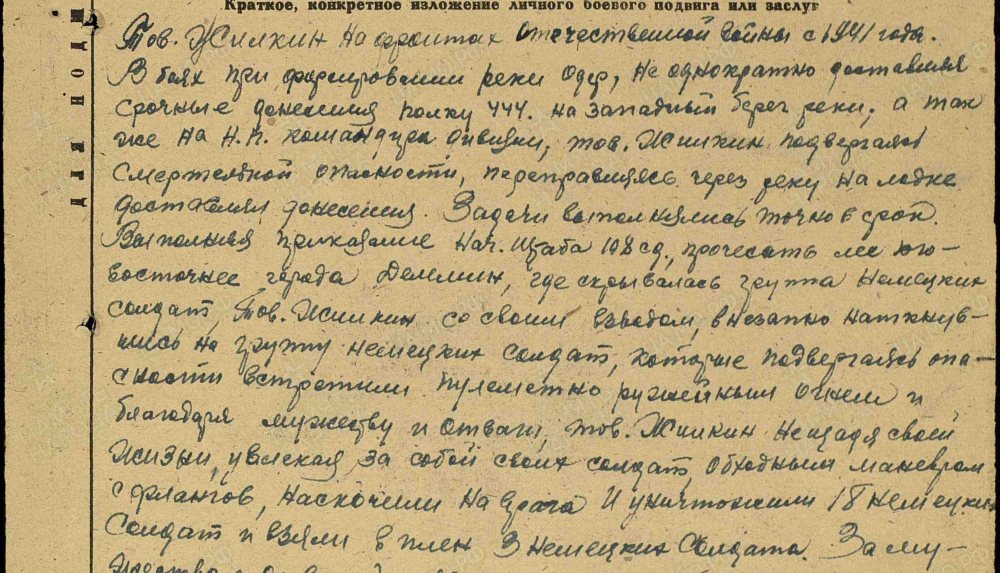 Краткое, конкретное изложение личного боевого подвига или заслуг
Тов. Жилкин на фронтах отечественной войны с 1941 года.
В боях при форсировании реки Одер, не однократно доставлял
срочные донесения полку 444. на западный берег реки, а так
же на Н.П. командира дивизии, тов. Жилкин подвергаясь
смертельной опасности, переправляясь через реку на лодке
доставлял донесения. Задачи выполнялись точно в срок.
Выполняя приказание Нач. штаба 108 сд., прочесать лес юго-
восточнее города Деммин, где скрывалась группа немецких
солдат, Тов. Жилкин со своим взводом, внезапно наткнув-
шись на группу немецких солдат, которые подвергаясь опа-
сности встретили пулеметно ружейным огнем и
благодаря мужеству и отваги, тов. Жилкин не щадя своей
жизни, увлекая за собой своих солдат, обходным маневром
с флангов, наскочили на врага и уничтожили 18 немецких
солдат и взяли в плен 3 немецких солдата. За му-
жество
для подш